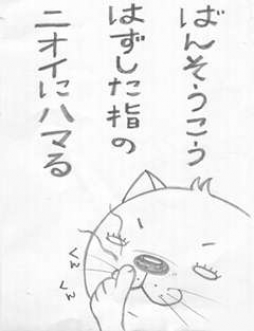 ばんそうこう
はずした指の
ニオイにハマる
くん
くん